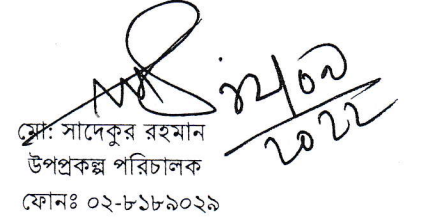 মো: সাদেকুর রহমান
উপপ্রকল্প পরিচালক
ফোনঃ ০২-৮১৮৯০২৯